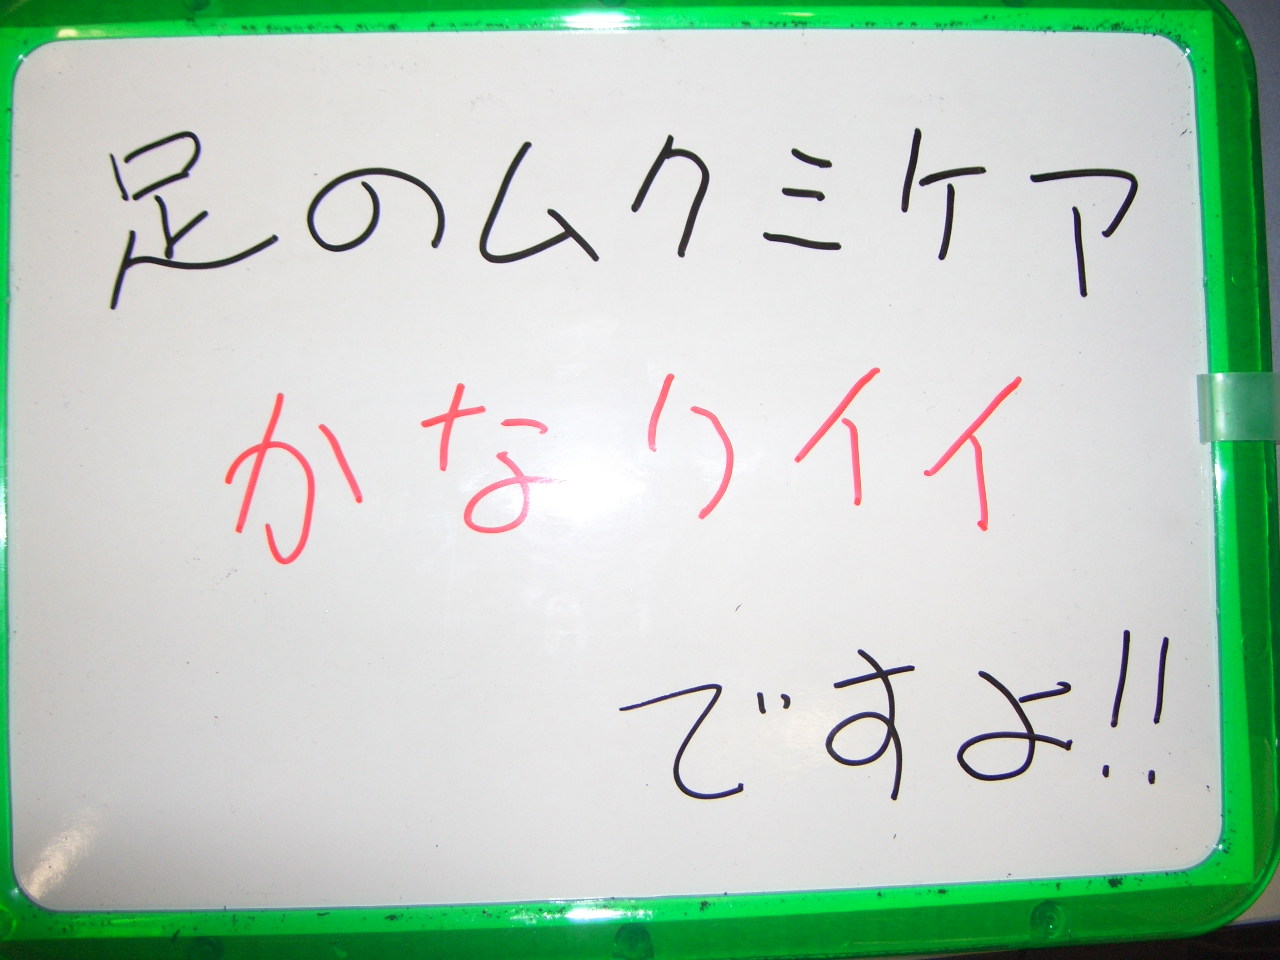 足のムクミケア
かなりイイ
ですよ!!